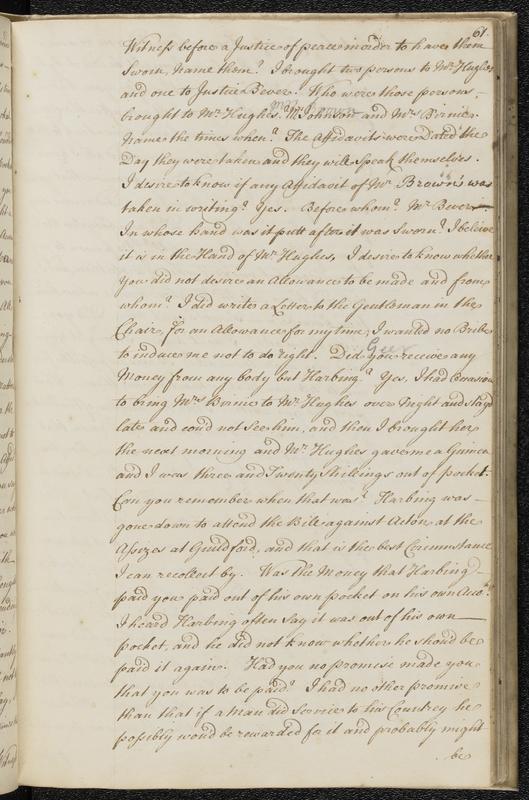 61.
Witness before a Justice of peace in order to have them
Sworn, Name them? I brought two persons to Mr. Hughes
and one to Justice Bever. Who were those persons
brought to Mr. Hughes. Mr Johnson and Mrs. Birnie.
Name the times when? The Affidavits were Dated the
Day they were taken and they will speak themselves.
I desire to know if any Affidavit of Mr. Brown's was
taken in writing? Yes. Before whom? Mr. Bever.
In whose hand was it putt after it was Sworn? I believe
it is in the Hand of Mr. Hughes, I desire to know whether
you did not desire an Allowance to be made and from
whom? I did write a Letter to the Gentleman in the
Chair, for an Allowance for my time, I wanted no Bribe
to induce me not to do right. Did you receive any
Money from any body but Harbing? Yes, I had Occasion
to bring Mrs Birnie to Mr. Hughes over Night and stayd
late and coud not See him, and then I brought her
the next morning and Mr. Hughes gave me a Guinea
and I was three and Twenty Shillings out of pocket.
Can you remember when that was? Harbing was
gone down to attend the Bill against Acton at the
Assizes at Guildford, and that is the best Circumstance
I can recollect by. Was the Money that Harbing
paid you paid out of his own pocket on his own Acco.t?
I heard Harbing often Say it was out of his own
pocket, and he did not know whether he shoud be
paid it again. Had you no promise made you
that you was to be paid? I had no other promise
than that if a Man did Service to his Countrey he
possibly woud be rewarded for it and probably might
be